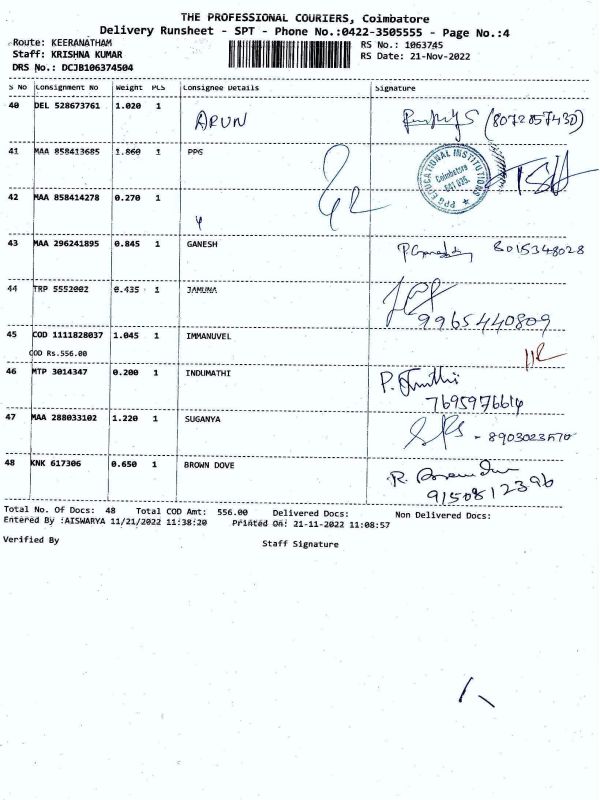 THE PROFESSIONAL COURIERS, Coimbatore
Delivery Runsheet - SPT - Phone No.:0422-3505555 - Page No.:4
Route: KEERANATHAM RS No.: 1063745
Staff: KRISHNA KUMAR RS Date: 21-Nov-2022
DRS No.: DCJB106374504
S No Consignment No Weight PLS Consignee Details Signature
40 DEL 528673761 1.020 1 ARUN (8072857430)
41 MAA 858413685 1.860 1 PPG
PPG EDUCATIONAL INSTITUTIONS
Coimbatore
641 035.
42 MAA 858414278 0.270 1
43 MAA 296241895 0.845 1 GANESH 8015348028
44 TRP 5552002 0.435 1 JAMUNA
9965440809
45 COD 1111828037 1.045 1 IMMANUVEL
COD Rs.556.00
46 MTP 3014347 0.200 1 INDUMATHI
7695976614
47 MAA 288033102 1.220 1 SUGANYA - 8903023570
48 KNK 617306 0.650 1 BROWN DOVE
9150812396
Total No. Of Docs: 48 Total COD Amt: 556.00 Delivered Docs: Non Delivered Docs:
Entered By :AISWARYA 11/21/2022 11:38:20 Printed On: 21-11-2022 11:08:57
Verified By Staff Signature